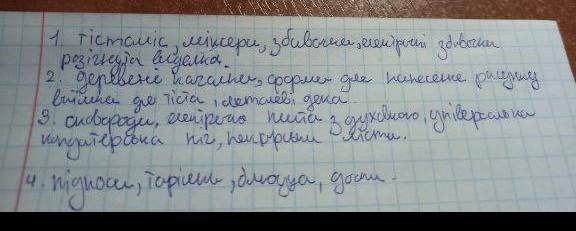 1. тістоміс, міксери, збивачки, електричні збивачки
розігнута виделка.
2. деревені качалки, форми для нанесене рисунку
виїмки для тіста, металеві дека
3. сковороди, електрична плита з духовкою, універсальна
кондитерська піч, пекарські листи.
4. підноси, тарілки, блюдца, дошки.